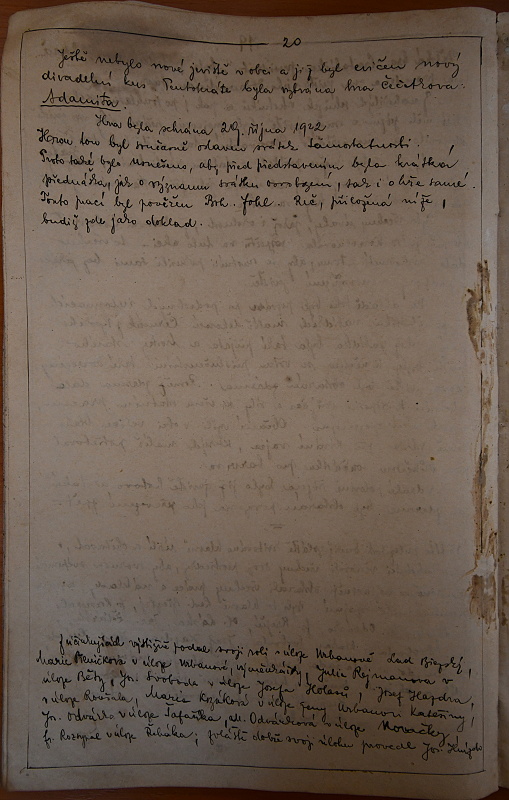 20
Ještě nebylo nové jeviště v obci a již byl cvičen nový
divadelní kus. Tentokráte byla vybrána hra Čečetkova:
Adamita.
Hra byla sehrána 29. října 1922
Hrou tou byl současně oslaven svátek samostatnosti.
Proto také bylo usneseno, aby před představením byla krátká
přednáška, jak o významu svátku osvobození, tak i o hře samé.
Touto prací byl pověřen Boh. Řeč, přiložena níže,
budiž zde jako doklad.
Z účinkujících výstižně podal svoji roli v úloze Urbanově Lad
Marie v úloze Urbanové, výměnkářky, Julie Rejmanova v
úloze Běty, Jos. Svoboda v úloze Josefa Holasů, Josef Hajdra,
v úloze Marie Kozáková v úloze ženy Urbanovi Kateřiny,
Jos. Odvárko v úloze Šafaříka, Odvárková v úloze Novačky,
Fr. Rozsypal v úloze zvláště dobře svoji úlohu provedl Jos.